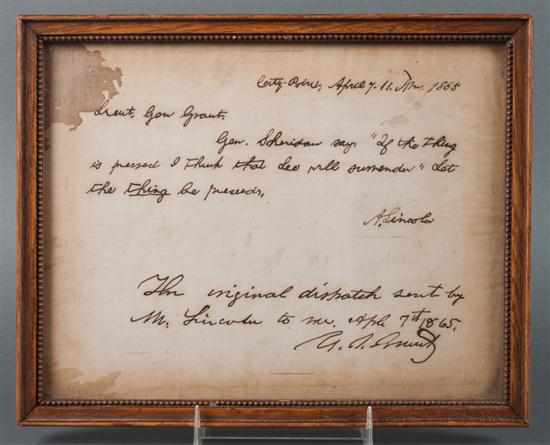 City Point, April 7. 11. A.m. 1865
Lieut. Gen Grant.
Gen. Sheridan says "If the thing
is pressed I think that Lee will surrender" Let
the thing be pressed.
A. Lincoln
The original dispatch sent by
Mr. Lincoln to me. Apl. 7th 1865.
U. S. Grant